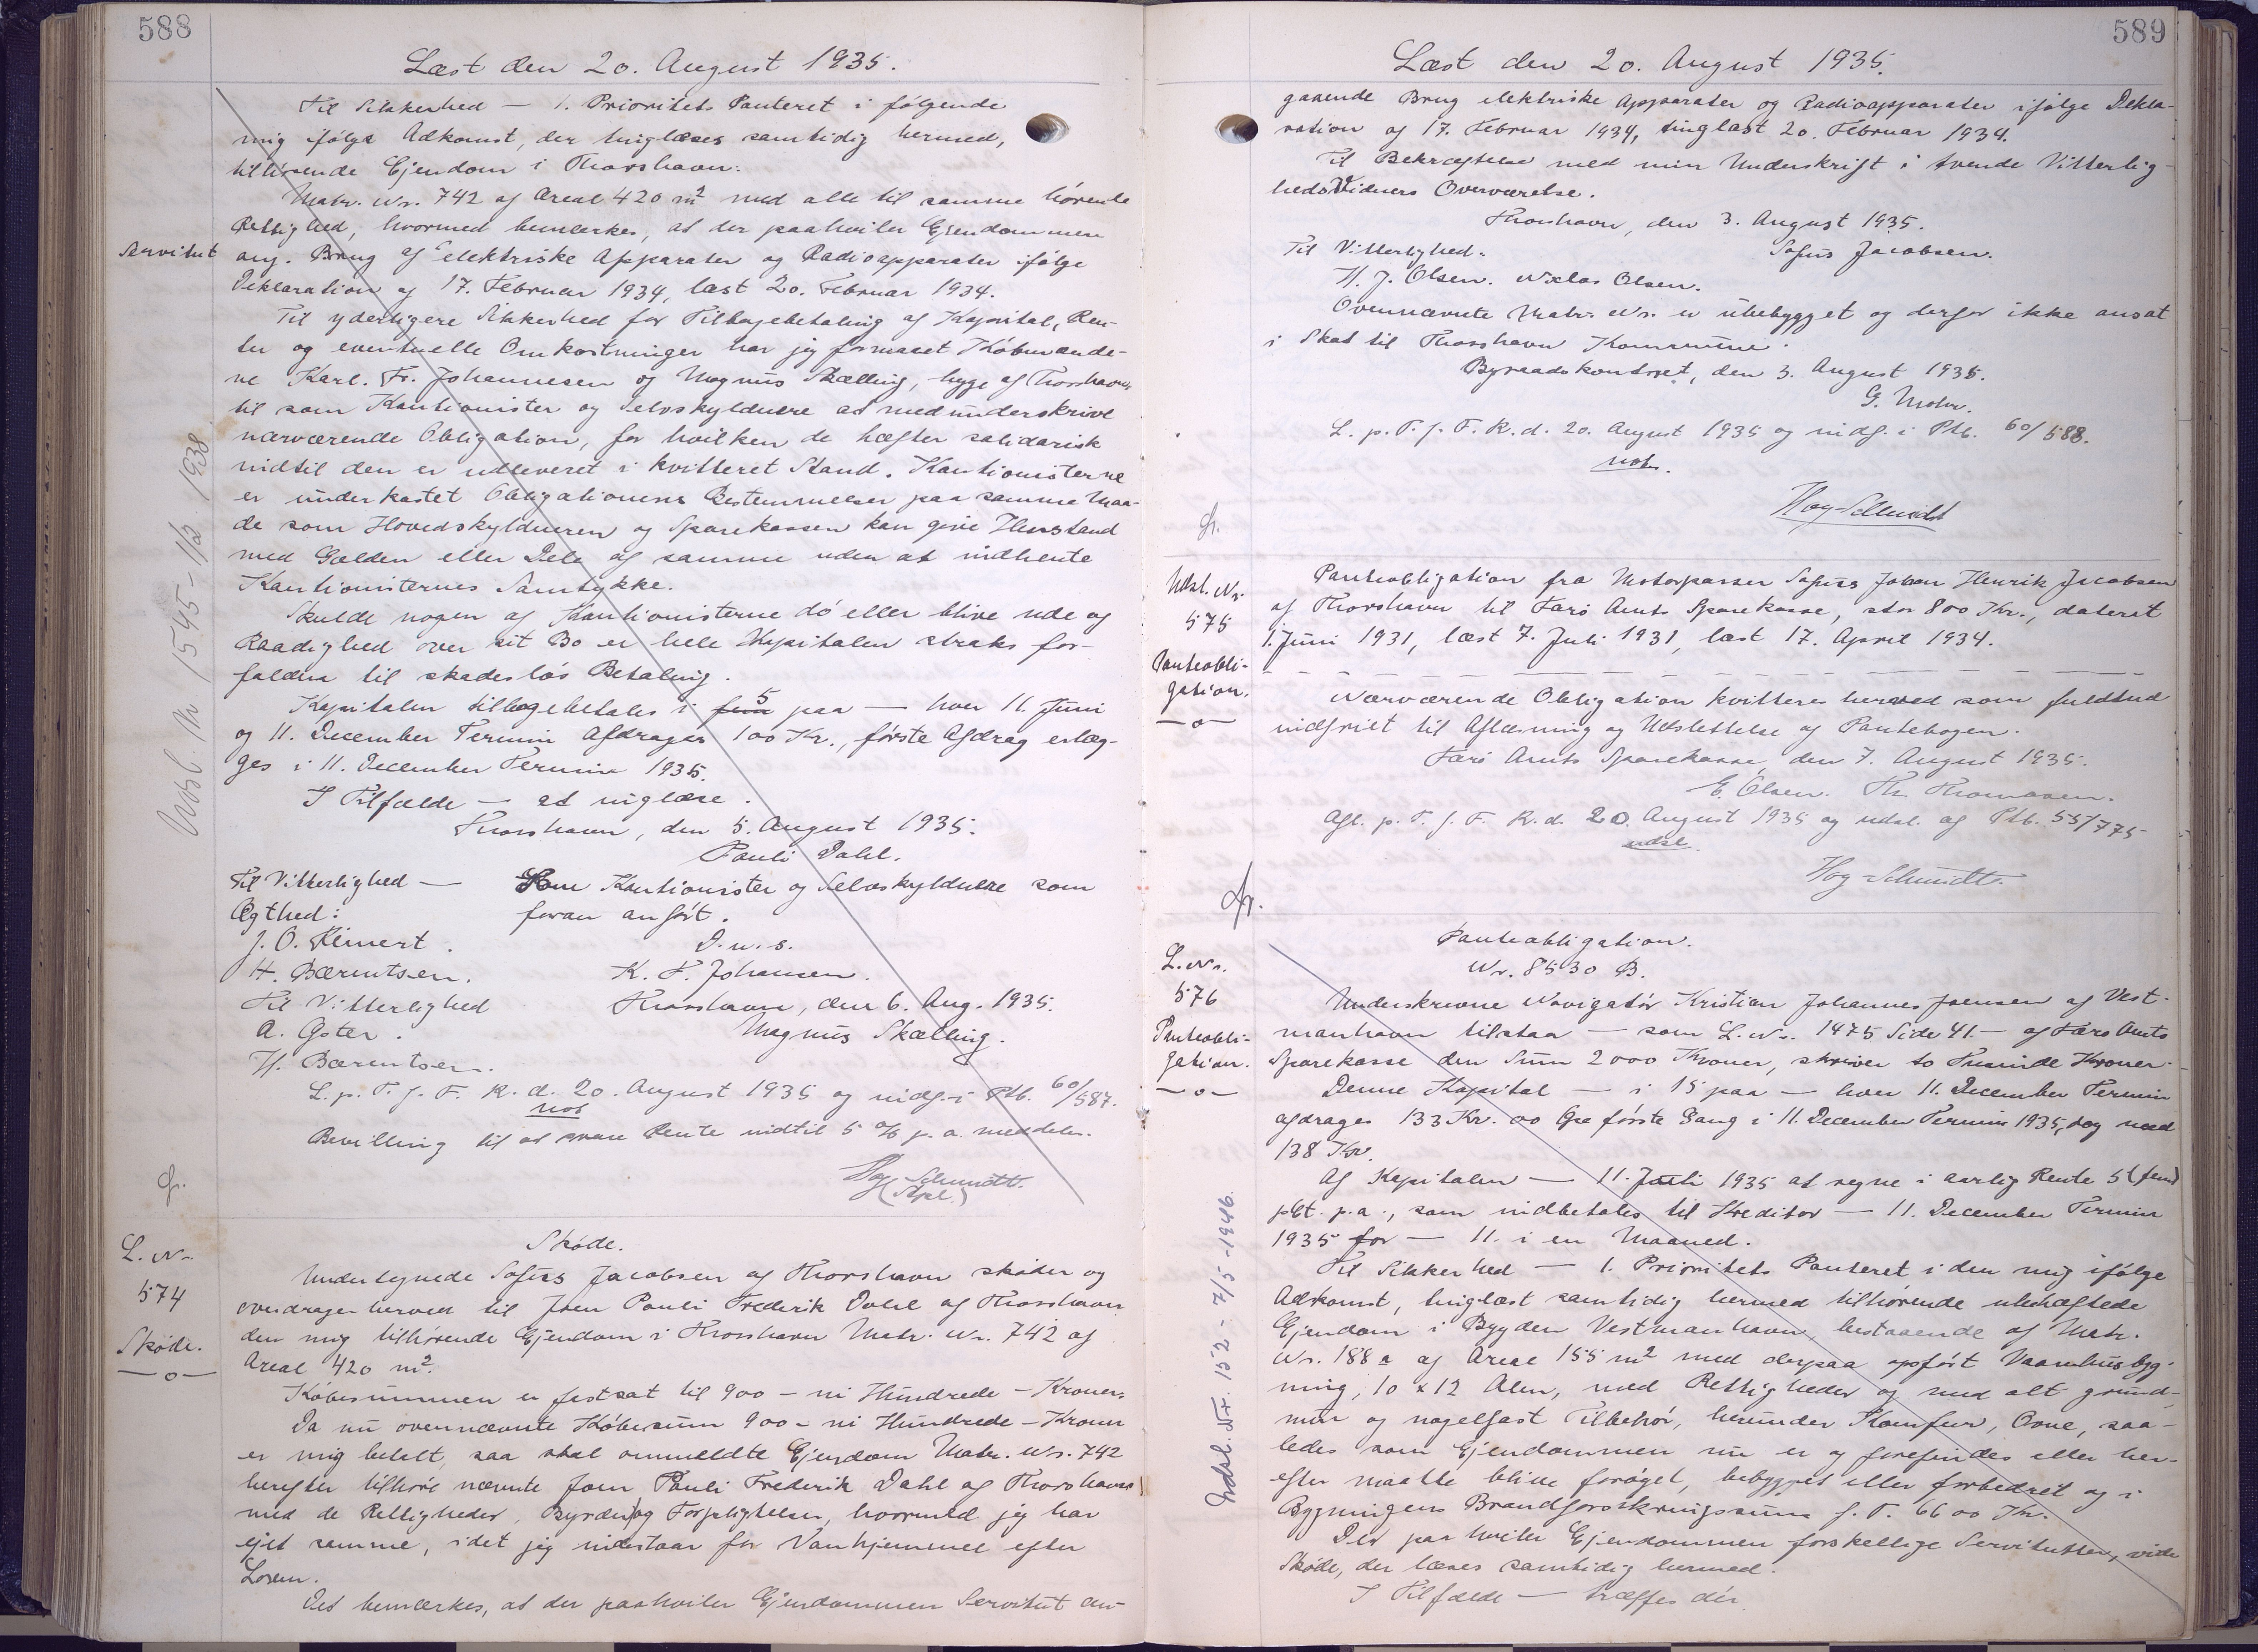 588
Læst den 20. August 1935.
Til Sikkerhed — 1. Prioritets Panteret i følgende
mig ifølge Adkomst, der tinglæses samtidig hermed,
tilhørende Ejendom i Thorshavn:
Matr. Nr. 742 af Areal 420 m² med alle til samme hørende
Rettighed, hvormed bemærkes, at der paahviler Ejendommen
Servitut ang. Brug af elektriske Apparater og Radioapparater ifølge
Deklaration af 17. Februar 1934, læst 20. Februar 1934.
Til yderligere Sikkerhed for Tilbagebetaling af Kapital, Ren-
ter og eventuelle Omkostninger har jeg formaaet Købmænde-
ne Karl. Fr. Johannesen og Magnus Skælling, begge af Thorshavn,
til som Kautionister og Selvskyldnere at medunderskrive
nærværende Obligation, for hvilken de hæfter solidarisk
indtil den er udleveret i kvitteret Stand. Kautionisterne
er underkastet Obligationens Bestemmelser paa samme Maa-
de som Hovedskyldneren og Sparekassen kan give Henstand
med Gælden eller Dele af samme uden at indhente
Kautionisternes Samtykke.
Skulde nogen af Kautionisterne dø eller blive ude og
Raadighed over sit Bo er hele Kapitalen straks for-
falden til skadesløs Betaling.
Kapitalen tilbagebetales i fem 5 paa — hver 11. Juni
og 11. December Termin Afdrager 100 Kr., første Afdrag erlæg-
ges i 11. December Termin 1935.
I Tilfælde — at tinglæse.
Thorshavn, den 5. August 1935.
Pauli Dahl.
Til Vitterlighed — Som Kautionister og Selvskyldnere som
Ægthed: foran anført.
J. O. Reinert. D. u. s.
H. Bærentsen. K. F. Johansen.
Til Vitterlighed Thorshavn, den 6. Aug. 1935.
A. Oster. Magnus Skælling.
H. Bærentsen.
L. p. T. f. F. R. d. 20. August 1935 og indf. i Ptb. 60/587.
not
Bevilling til at svare Rente indtil 5 % p. a. meddeles.
Høg-Schmidt.
Udsl. Nr 1545 - 11/2 1938
Gr.
L. Nr.
574
Skøde.
—o—
Skøde.
Undertegnede Sofus Jacobsen af Thorshavn skøder og
overdrager herved til Joen Pauli Frederik Dahl af Thorshavn
den mig tilhørende Ejendom i Thorshavn Matr. Nr. 742 af
Areal 420 m².
Købesummen er fastsat til 900 - ni Hundrede - Kroner.
Da nu ovennævnte Købesum 900 - ni Hundrede - Kroner
er mig betalt, saa skal ommeldte Ejendom Matr. Nr. 742
herefter tilhøre nævnte Joen Pauli Frederik Dahl af Thorshavn
med de Rettigheder, Byrder og Forpligtelser, hvormed jeg har
ejet samme, idet jeg indestaar for Vanhjemmel efter
Loven.
Det bemærkes, at der paahviler Ejendommen Servitut an-
589
Læst den 20. August 1935.
gaaende Brug elektriske Apparater og Radioapparater ifølge Dekla-
ration af 17. Februar 1934, tinglæst 20. Februar 1934.
Til Bekræftelse med min Underskrift i tvende Vitterlig-
hedsVidners Overværelse.
Thorshavn, den 3. August 1935.
Til Vitterlighed: Sofus Jacobsen.
H. J. Olsen. Niclas Olsen.
Ovennævnte Matr. Nr. er ubebygget og derfor ikke ansat
i Skat til Thorshavn Kommune.
Byraadskontoret, den 3. August 1935.
G. Mohr.
L. p. T. f. F. R. d. 20. August 1935 og indf. i Ptb. 60/588.
not.
Høg-Schmidt
Gr.
Udsl. Nr.
575
Panteobli-
gation.
—o—
Panteobligation fra Motorpasser Sofus Johan Henrik Jacobsen
af Thorshavn til Færø Amts Sparekasse, stor 800 Kr., dateret
1. Juni 1931, læst 7. Juli 1931, læst 17. April 1934.
Nærværende Obligation kvitteres herved som fuldtud
indfriet til Aflæsning og Udslettelse af Pantebogen.
Færø Amts Sparekasse, den 7. August 1935.
E. Olsen. Th. Thomassen.
Afl. p. T. f. F. R. d. 20. August 1935 og udsl. af Ptb. 55/775
udsl.
Høg-Schmidt.
Gr.
L. Nr.
576
Panteobli-
gation.
—o—
Panteobligation.
Nr. 8530 B.
Underskrevne Navigatør Kristian Johannes Joensen af Vest-
manhavn tilstaa — som L. Nr. 1475 Side 41 — af Færø Amts
Sparekasse den Sum 2000 Kroner, skriver to Tusinde Kroner.
Denne Kapital — i 15 paa — hver 11. December Termin
afdrages 133 Kr. 00 Øre første Gang i 11. December Termin 1935, dog med
138 Kr.
Af Kapitalen — 11. Juli 1935 at regne i aarlig Rente 5 (fem)
pCt. p.a., som indbetales til Kreditor — 11. December Termin
1935 for — 11. i en Maaned.
Til Sikkerhed — 1. Prioritets Panteret i den mig ifølge
Adkomst, tinglæst samtidig hermed tilhørende ubehæftede
Ejendom i Bygden Vestmanhavn, bestaaende af Matr.
Nr. 188 a af Areal 155 m² med derpaa opført Vaanhusbyg-
ning, 10 x 12 Alen, med Rettigheder og med alt grund-
mur og nagelfast Tilbehør, herunder Komfur, Ovne, saa-
ledes som Ejendommen nu er og forefindes eller her-
efter maatte blive forøget, bebygget eller forbedret og i
Bygningens Brandforsikringssum f. T. 6600 Kr.
Der paahviler Ejendommen forskellige Servitutter, vide
Skøde, der læses samtidig hermed.
I Tilfælde — træffes dér.
Udsl. Nr. 152 - 7/5 - 1946.